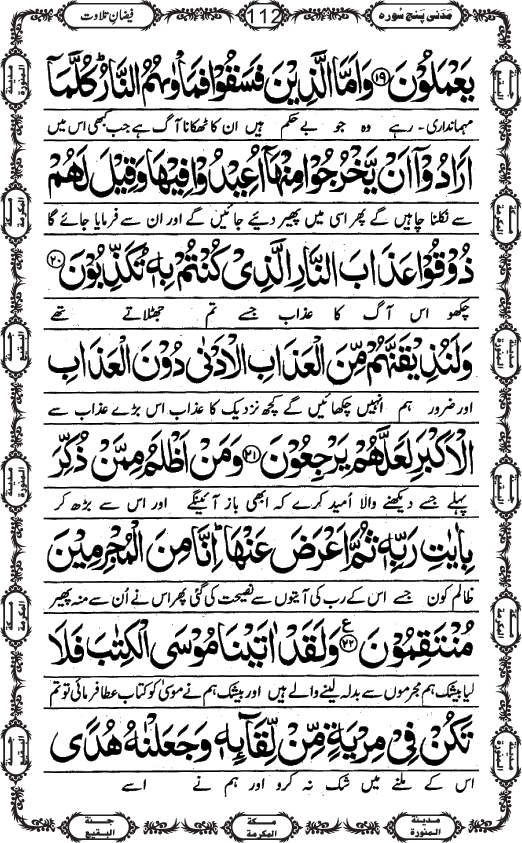 مَدَنی پنج سُورہ
112
فیضانِ تلاوت
يَعْمَلُوْنَ ﴿۱۹﴾ وَاَمَّا الَّذِيْنَ فَسَقُوْا فَمَاْوٰىهُمُ النَّارُ ؕ كُلَّمَاۤ
مہمانداری۔ رہے وہ جو بے حکم ہیں ان کا ٹھکانا آگ ہے جب بھی اس میں
اَرَادُوْۤا اَنْ يَّخْرُجُوْا مِنْهَاۤ اُعِيْدُوْا فِيْهَا وَقِيْلَ لَهُمْ
سے نکلنا چاہیں گے پھر اسی میں پھیر دیئے جائیں گے اور ان سے فرمایا جائے گا
ذُوْقُوْا عَذَابَ النَّارِ الَّذِيْ كُنْتُمْ بِهٖ تُكَذِّبُوْنَ ﴿۲۰﴾
چکھو اس آگ کا عذاب جسے تم جھٹلاتے تھے
وَلَنُذِيْقَنَّهُمْ مِّنَ الْعَذَابِ الْاَدْنٰى دُوْنَ الْعَذَابِ
اور ضرور ہم انہیں چکھائیں گے کچھ نزدیک کا عذاب اس بڑے عذاب سے
الْاَكْبَرِ لَعَلَّهُمْ يَرْجِعُوْنَ ﴿۲۱﴾ وَمَنْ اَظْلَمُ مِمَّنْ ذُكِّرَ
پہلے جسے دیکھنے والا اُمید کرے کہ ابھی باز آئینگے اور اس سے بڑھ کر
بِاٰيٰتِ رَبِّهٖ ثُمَّ اَعْرَضَ عَنْهَا ؕ اِنَّا مِنَ الْمُجْرِمِيْنَ
ظالم کون جسے اس کے رب کی آیتوں سے نصیحت کی گئی پھر اس نے اُن سے منہ پھیر
مُنْتَقِمُوْنَ ﴿۲۲﴾ ع وَلَقَدْ اٰتَيْنَا مُوْسَى الْكِتٰبَ فَلَا
لیا بیشک ہم مجرموں سے بدلہ لینے والے ہیں اور بیشک ہم نے موسیٰ کو کتاب عطا فرمائی تو تم
تَكُنْ فِيْ مِرْيَةٍ مِّنْ لِّقَآئِهٖ وَجَعَلْنٰهُ هُدًى
اس کے ملنے میں شک نہ کرو اور ہم نے اسے
مدینۃ المنورۃ
مکۃ المکرمۃ
جنۃ البقیع
مدینۃ المنورۃ
مکۃ المکرمۃ
جنۃ البقیع
مدینۃ المنورۃ
جنۃ البقیع
مکۃ المکرمۃ
مدینۃ المنورۃ
جنۃ البقیع
مکۃ المکرمۃ
مدینۃ المنورۃ
مدینۃ المنورۃ
مکۃ المکرمۃ
جنۃ البقیع